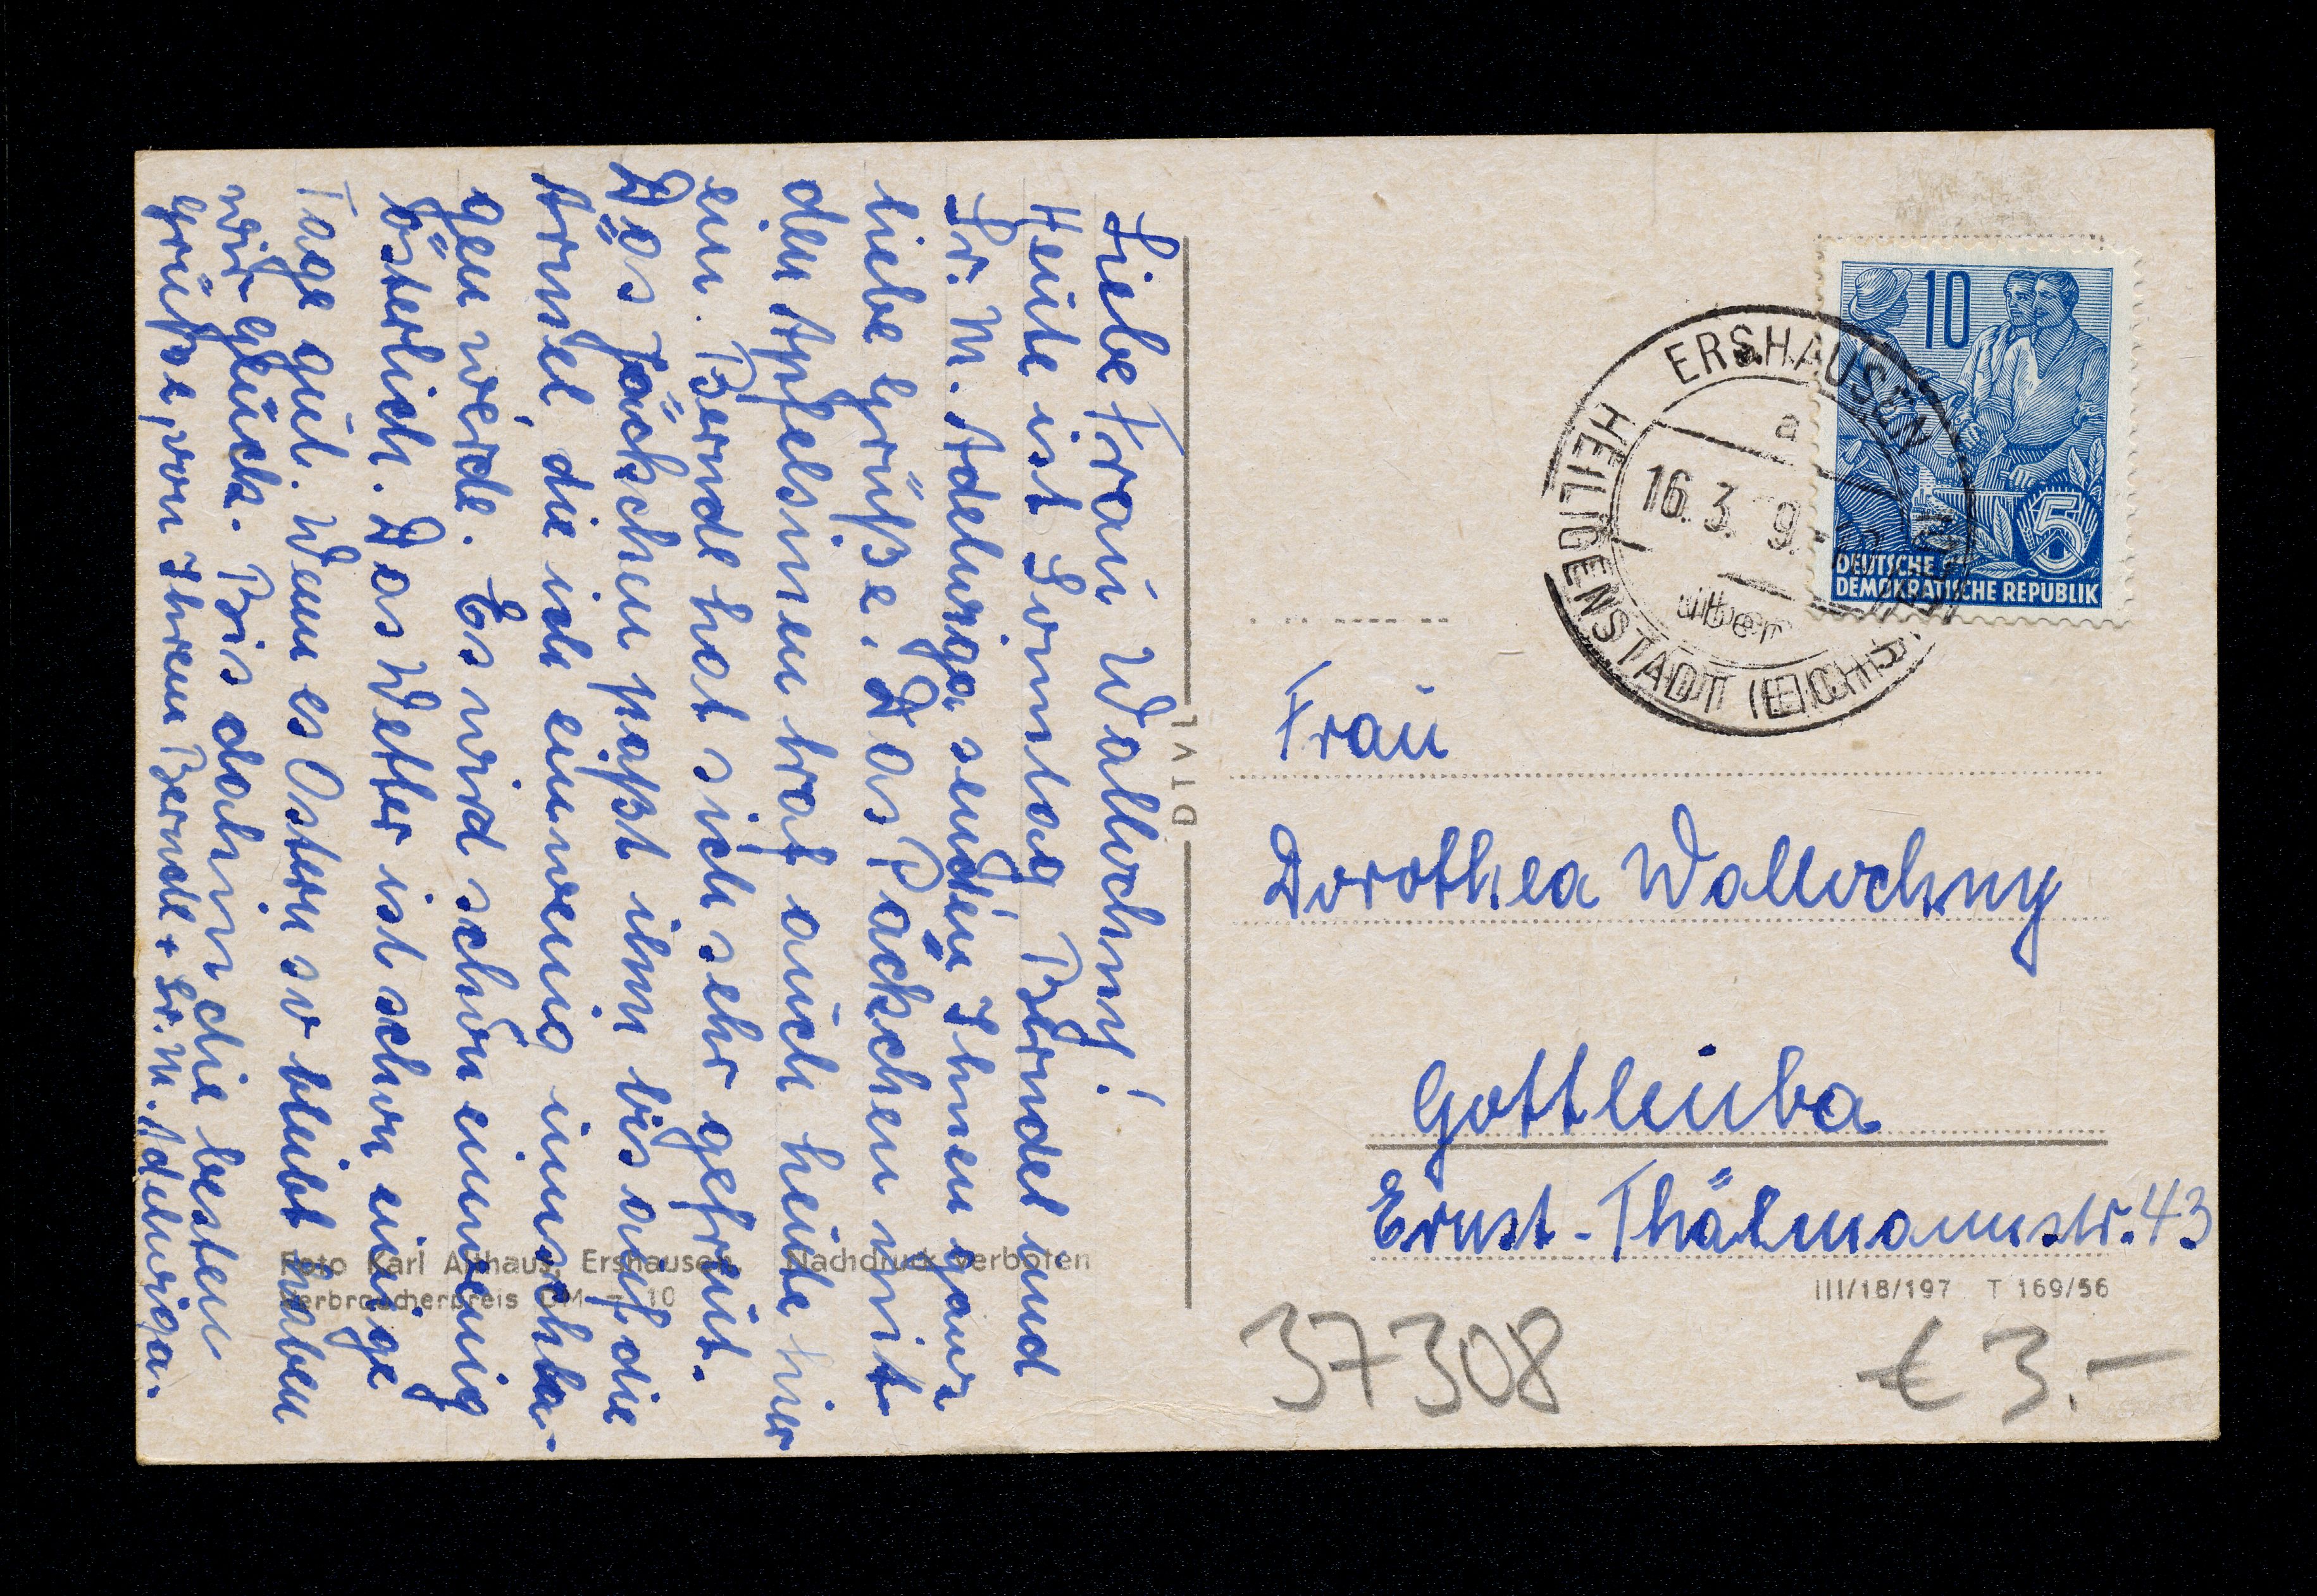 Liebe Frau Wallochny!
Heute ist Sonntag Berndel und
Sr. M. Adelwiga senden Ihnen ganz
liebe Grüße. Das Päckchen mit
den Apfelsinen traf auch heute hier
ein. Bernde hat sich sehr gefreut.
Das Jäckchen paßt ihm bis auf die
Ärmel, die ich ein wenig einschla-
gen werde. Es wird schon ein wenig
österlich. Das Wetter ist schon einige
Tage gut. Wenn es Ostern so bleibt haben
wir Glück. Bis dahin die besten
Grüße, von Ihrem Bernde + Sr. M. Adelwiga.
Foto Karl Althaus, Ershausen. Nachdruck verboten
Verbraucherpreis DM -.10
DTVL
ERSHAUSEN
a
16.3. 9
über
HEILIGENSTADT (EICHF)
10
5
DEUTSCHE
DEMOKRATISCHE REPUBLIK
Frau
Dorothea Wallochny
Gottleuba
Ernst-Thälmannstr. 43
III/18/197 T 169/56
37308
€ 3.-